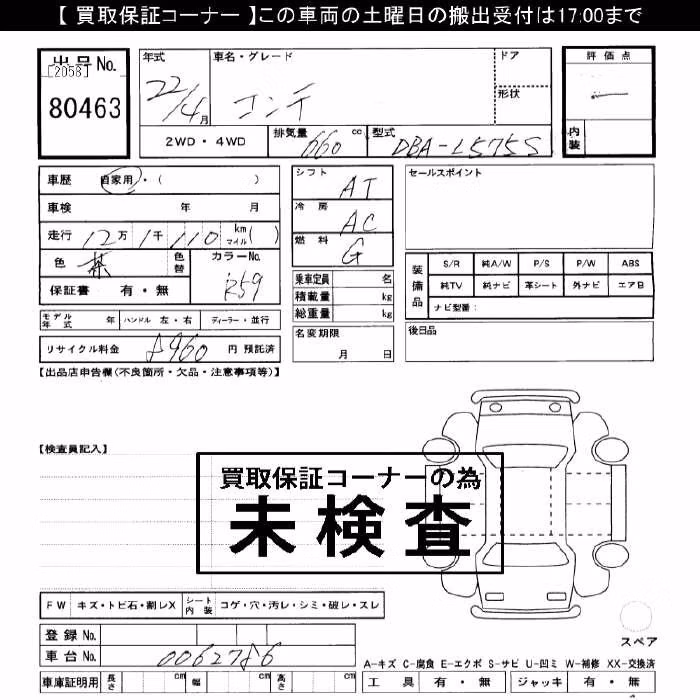 【 買取保証コーナー 】この車両の土曜日の搬出受付は17:00まで
出品No.
[2058]
80463
年式
22/4月
車名・グレード
コンテ
ドア
形状
評価点
内装
2WD・4WD
排気量 660 cc
型式 DBA-L575S
車歴 自家用・( )
車検 年 月
走行 12万1千110 km マイル( )
色 茶 色替
カラーNo. R59
保証書 有・無
モデル年式 年 ハンドル 左・右 ディーラー・並行
リサイクル料金 8960 円 預託済
シフト AT
冷房 AC
燃料 G
乗車定員 名
積載量 kg
総重量 kg
名変期限
月 日
セールスポイント
装備品
S/R 純A/W P/S P/W ABS
純TV 純ナビ 革シート 外ナビ エアB
ナビ型番:
後日品
【出品店申告欄(不良箇所・欠品・注意事項等)】
【検査員記入】
買取保証コーナーの為
未検査
FW キズ・トビ石・割レX シート内装 コゲ・穴・汚レ・シミ・破レ・スレ
登録No.
車台No. 0062786
車庫証明用 長さ cm 幅 cm 高さ cm
スペア
A-キズ C-腐食 E-エクボ S-サビ U-凹ミ W-補修 XX-交換済
工具 有・無 ジャッキ 有・無